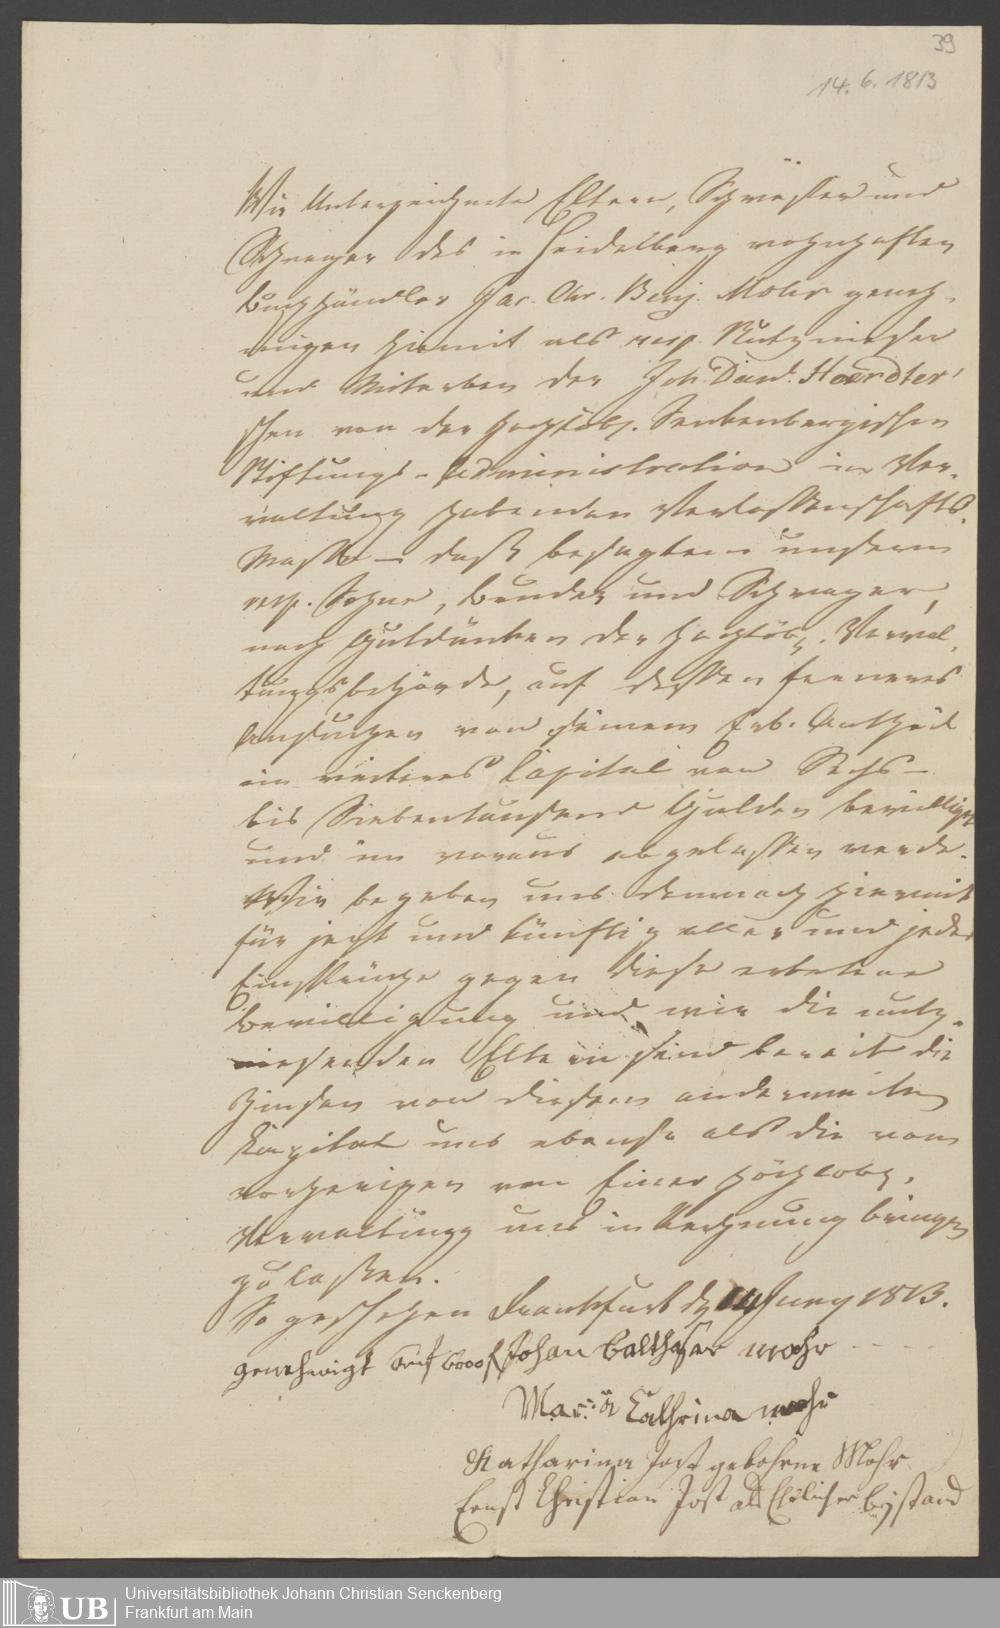 39
14. 6. 1813
Wir Unterzeichnete Eltern, Schwester und
Schwager des in Heidelberg wohnhaften
Buchhändler Jac. Chr. Benj. Mohr geneh-
migen hiemit als resp. Nutznieser
und Miterben der Joh. Danl. Hoerdter'
schen von der hochlöbl. Senkenbergischen
Stiftungs-Administration in Ver-
waltung habenden Verlassenschafts
Masse – daß besagtem unserm
resp. Sohne, Bruder und Schwager,
nach Gutdünken der hochlöbl. Verwal-
tungsbehörde, auf dessen ferneres
Ansuchen von seinem Erb. Antheil
ein weiteres Capital von Sechs-
bis Siebentausend Gulden bewilliget
und im voraus abgelassen werde.
Wir begeben uns demnach hiermit
für jezt und künftig aller und jeder
Einsprüche gegen diese erbetene
Bewilligung und wir die nutz-
niesenden Eltern sind bereit die
Zinsen von diesem anderweiten
Kapital uns ebenso als die vom
vorherigen von Einer höchlobl.
Verwaltung uns in Rechnung bringen
zu lassen.
So geschehen Frankfurt d. 14 Juny 1813.
genehmigt auf 6000 f Johan Balthasar Mohr
Maria Cathrina Mohr
Katharina Jost gebohrne Mohr
Ernst Christian Jost als Ehlicher Beystand
UB
Universitätsbibliothek Johann Christian Senckenberg
Frankfurt am Main